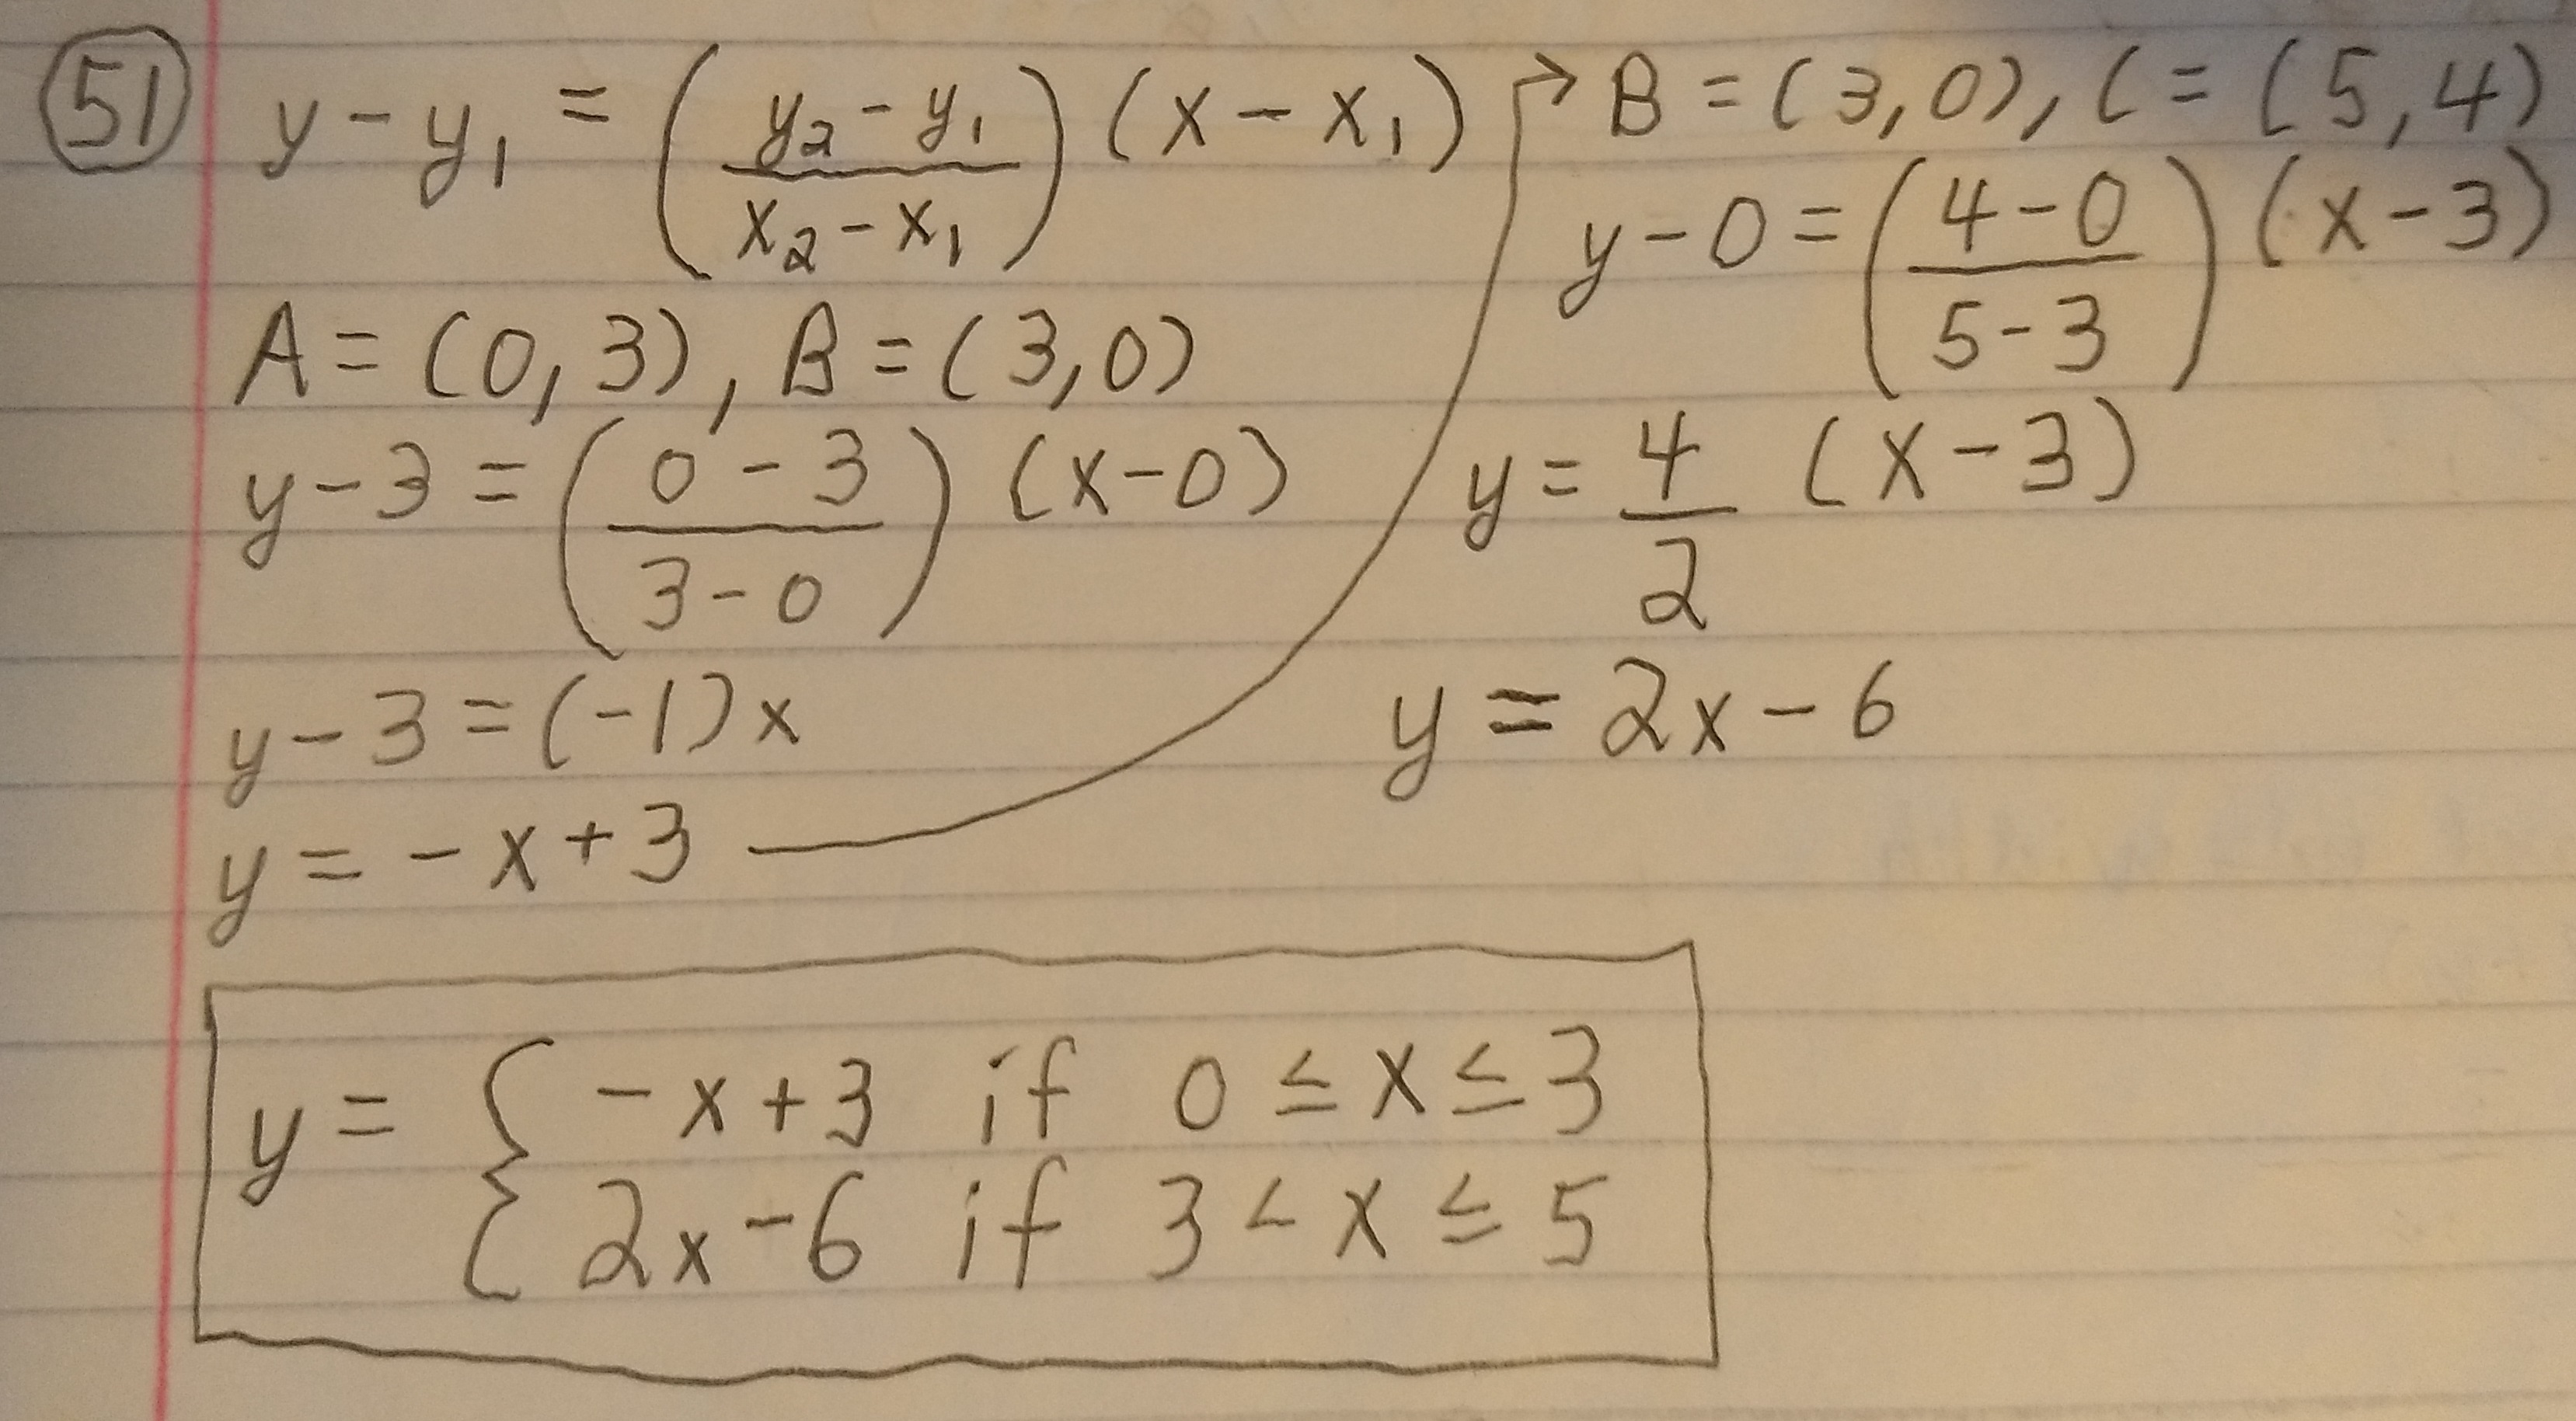 51
y - y₁ = ( (y₂ - y₁) / (x₂ - x₁) ) (x - x₁)
A = (0, 3), B = (3, 0)
y - 3 = ( (0 - 3) / (3 - 0) ) (x - 0)
y - 3 = (-1)x
y = -x + 3
→ B = (3, 0), C = (5, 4)
y - 0 = ( (4 - 0) / (5 - 3) ) (x - 3)
y = 4/2 (x - 3)
y = 2x - 6
y = { -x + 3 if 0 ≤ x ≤ 3
2x - 6 if 3 < x ≤ 5